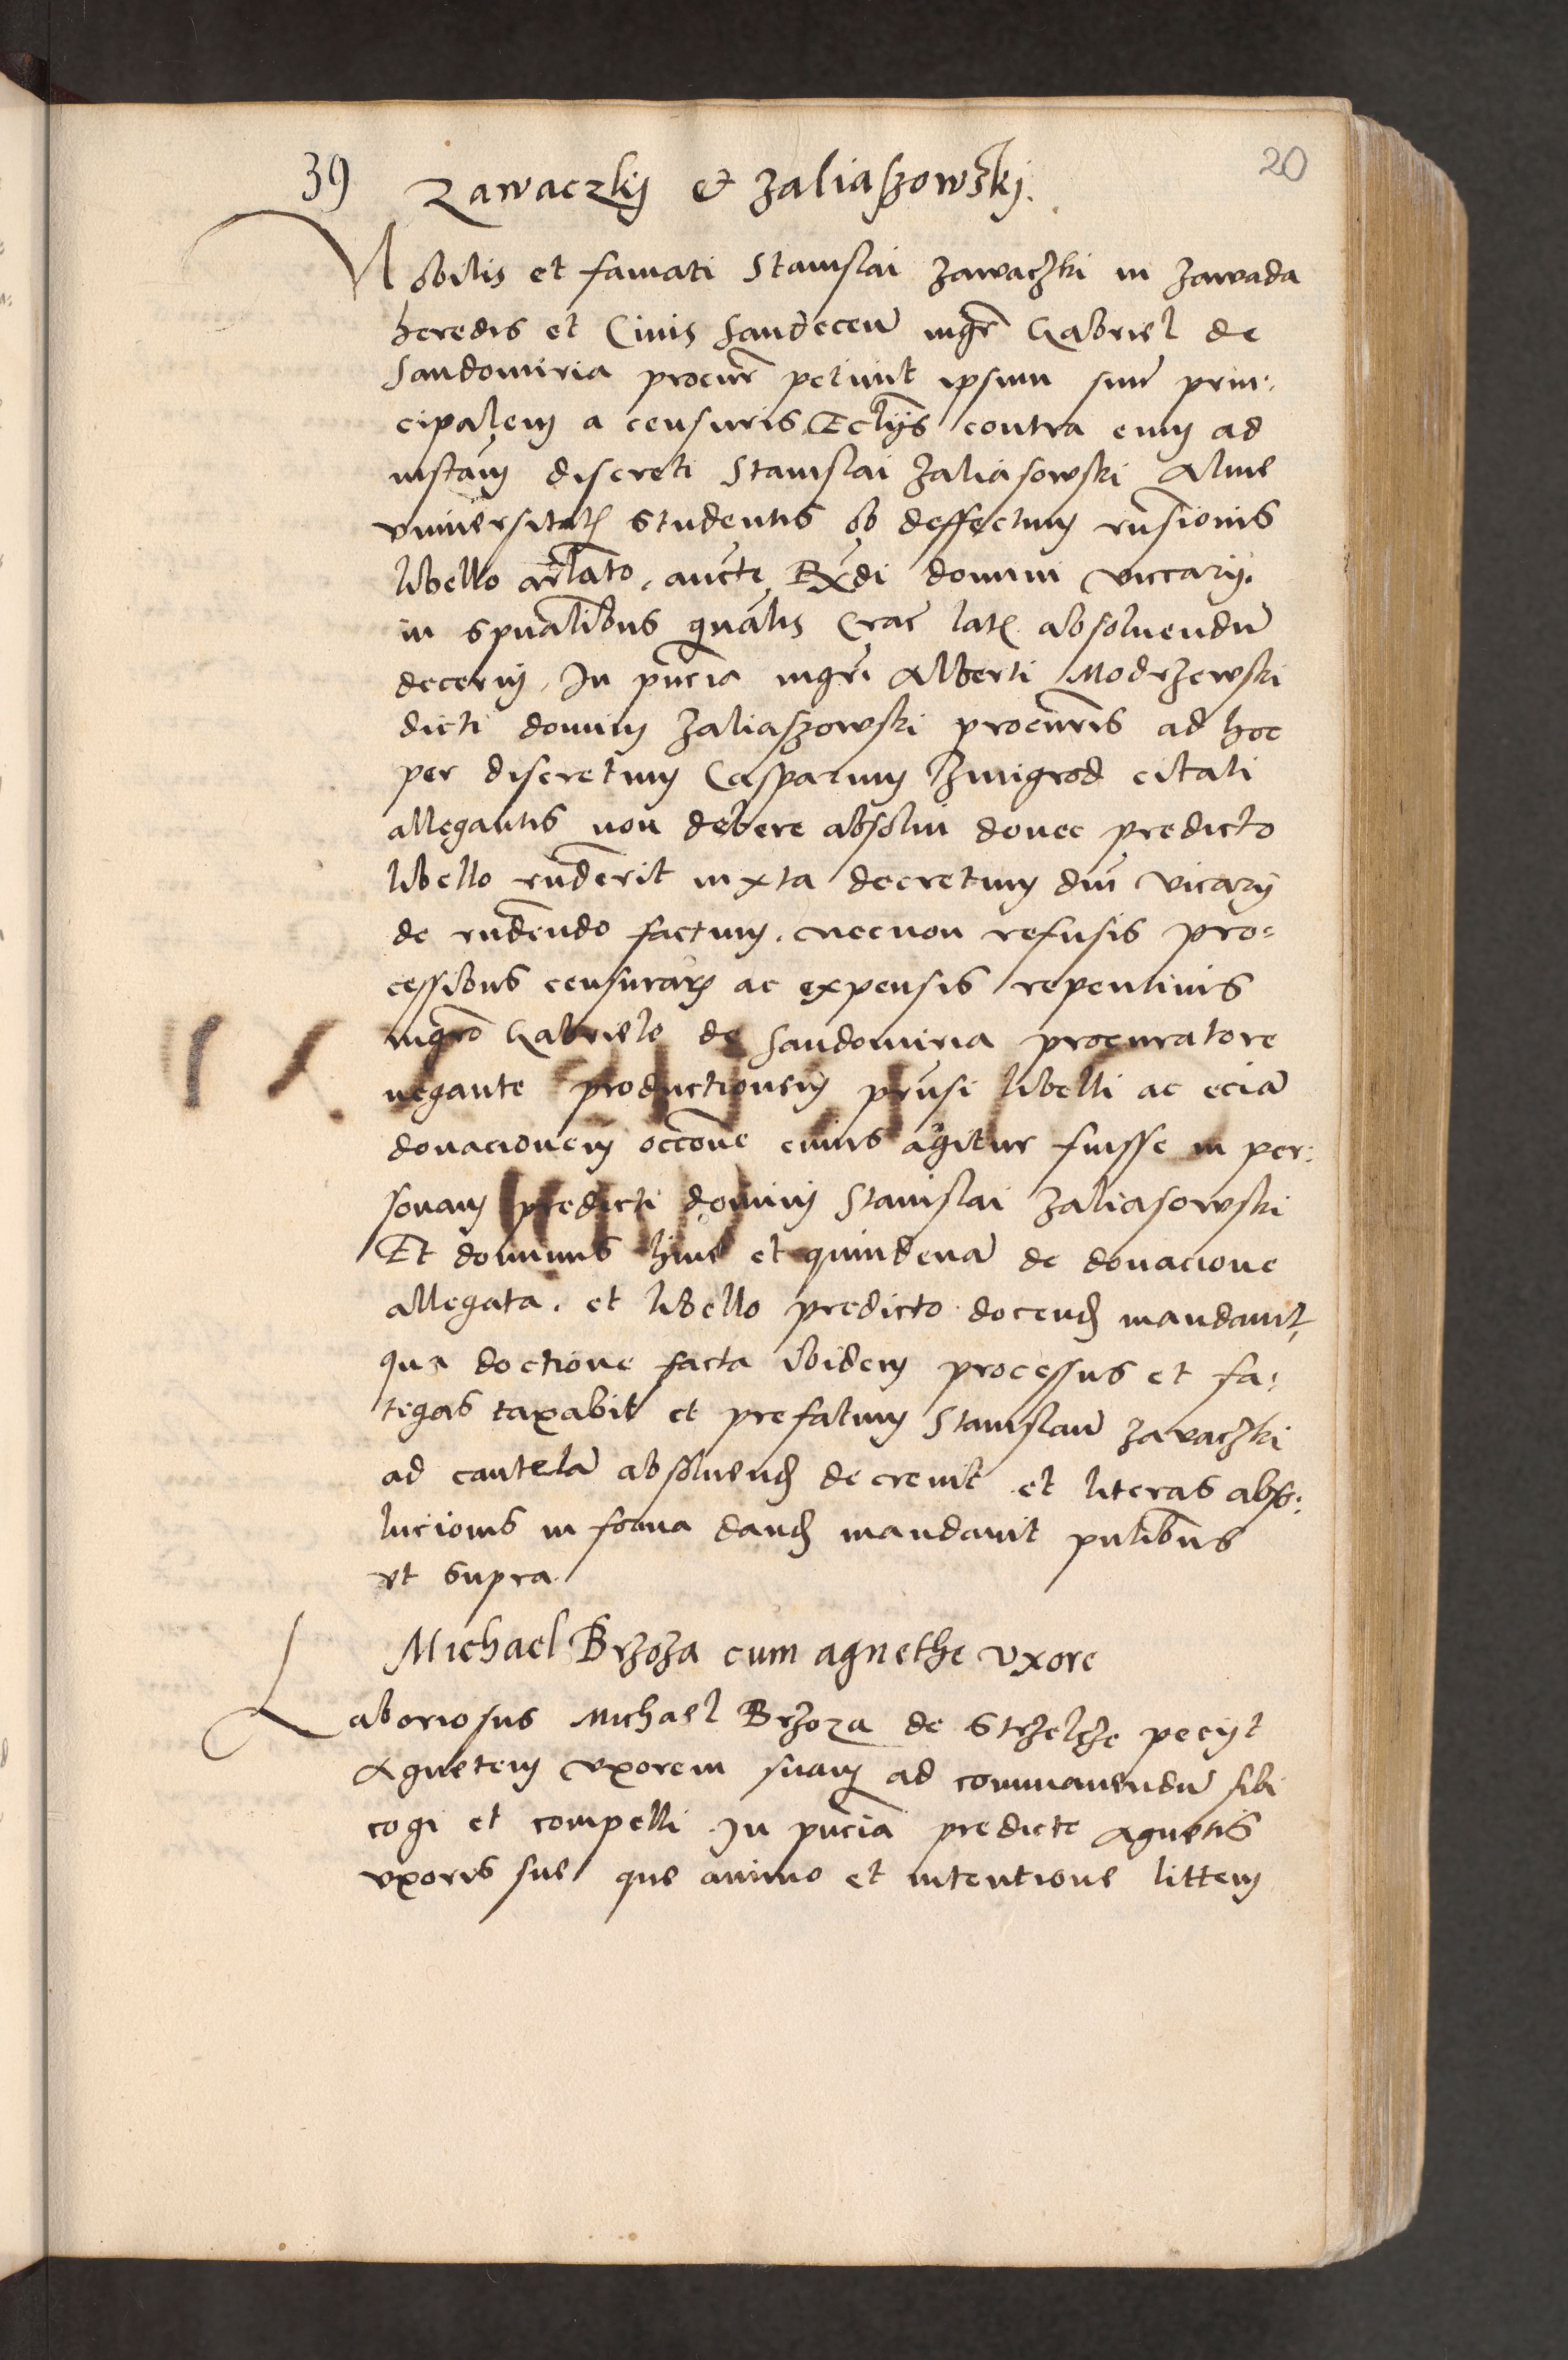 39 20
Zawaczkij et Zaliaszowskj.
Nobilis et famati Stanislai Zawaczki in Zawada
heredis et Civis Sandeceñ mgr̃ Gabriel de
Sandomiria procur̃ petiuit ipsum suũ prin:
cipalem a censuris Ecl̃ijs contra eum ad
instañ discreti Stanislai Zaliasowski Alme
vniuersitat̃ studentis ob deffectum rñsionis
libello arlato, aucte R̃di domini viccarij
in sp̃ualibus gñalis Crac̃ lat̃ absoluendũ
decerni, In p̃ncia mgr̃i Alberti Modrzewski
dicti domini Zaliaszowski procur̃is ad hoc
per discretum Casparum Zmigrod citati
allegantis non debere absolui donec predicto
libello rñderit iuxta decretum dñi vicarij
de rñdendo factum, necnon refusis pro=
cessibus censurar̃ ac expensis repentinis
mgr̃o Gabriele de Sandomiria procuratore
negante productionem p̃nsi libelli ac eciã
donacionem occõne cuius agitur fuisse in per:
sonam predicti domini Stanislai Zaliasowski
Et dominus hinc et quindenã de donacione
allegata, et libello predicto docend̃ mandauit,
qua doctione facta ibidem processus et fa:
tigas taxabit et prefatum Stanislaũ Zavaczki
ad cautelã absoluend̃ decreuit et literas abso:
lucionis in forma dand̃ mandauit p̃ntibus
vt supra
Michael Brzoza cum agnethe vxore
Laboriosus Michael Brzoza de Strzelcze pecijt
Agnetem vxorem suam ad commanendũ sibi
cogi et compelli In p̃ncia predicte Agnetis
vxoris sue que animo et intentione littem